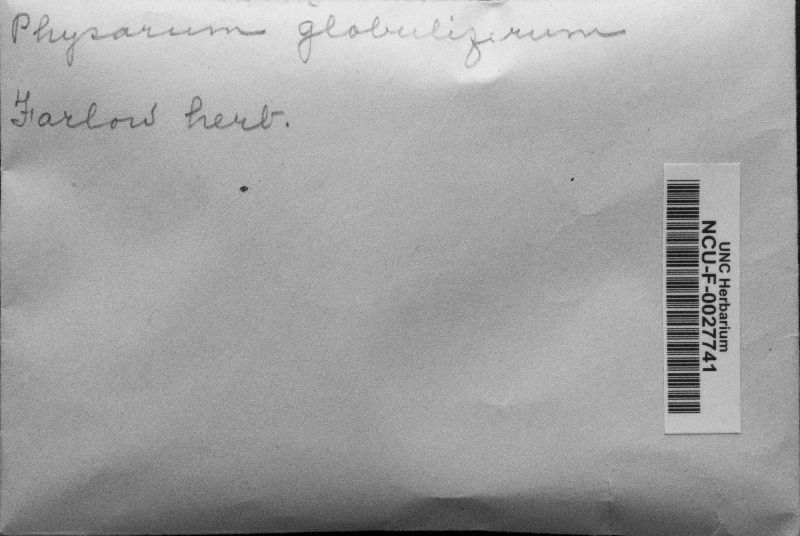 Physarum globuliferum
Farlow herb.
UNC Herbarium
NCU-F-0027741